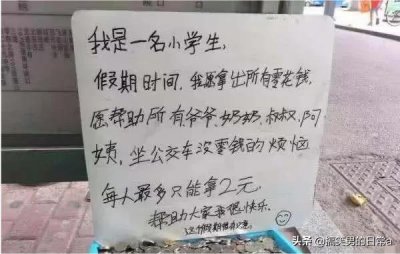 我是一名小学生,
假期时间,我愿拿出所有零花钱,
愿帮助所有爷爷、奶奶、叔叔、阿
姨,坐公交车没零钱的烦恼
每人最多只能拿2元
帮助大家我很快乐.
这个假期很有意思.
头条 @搞笑男的日常a